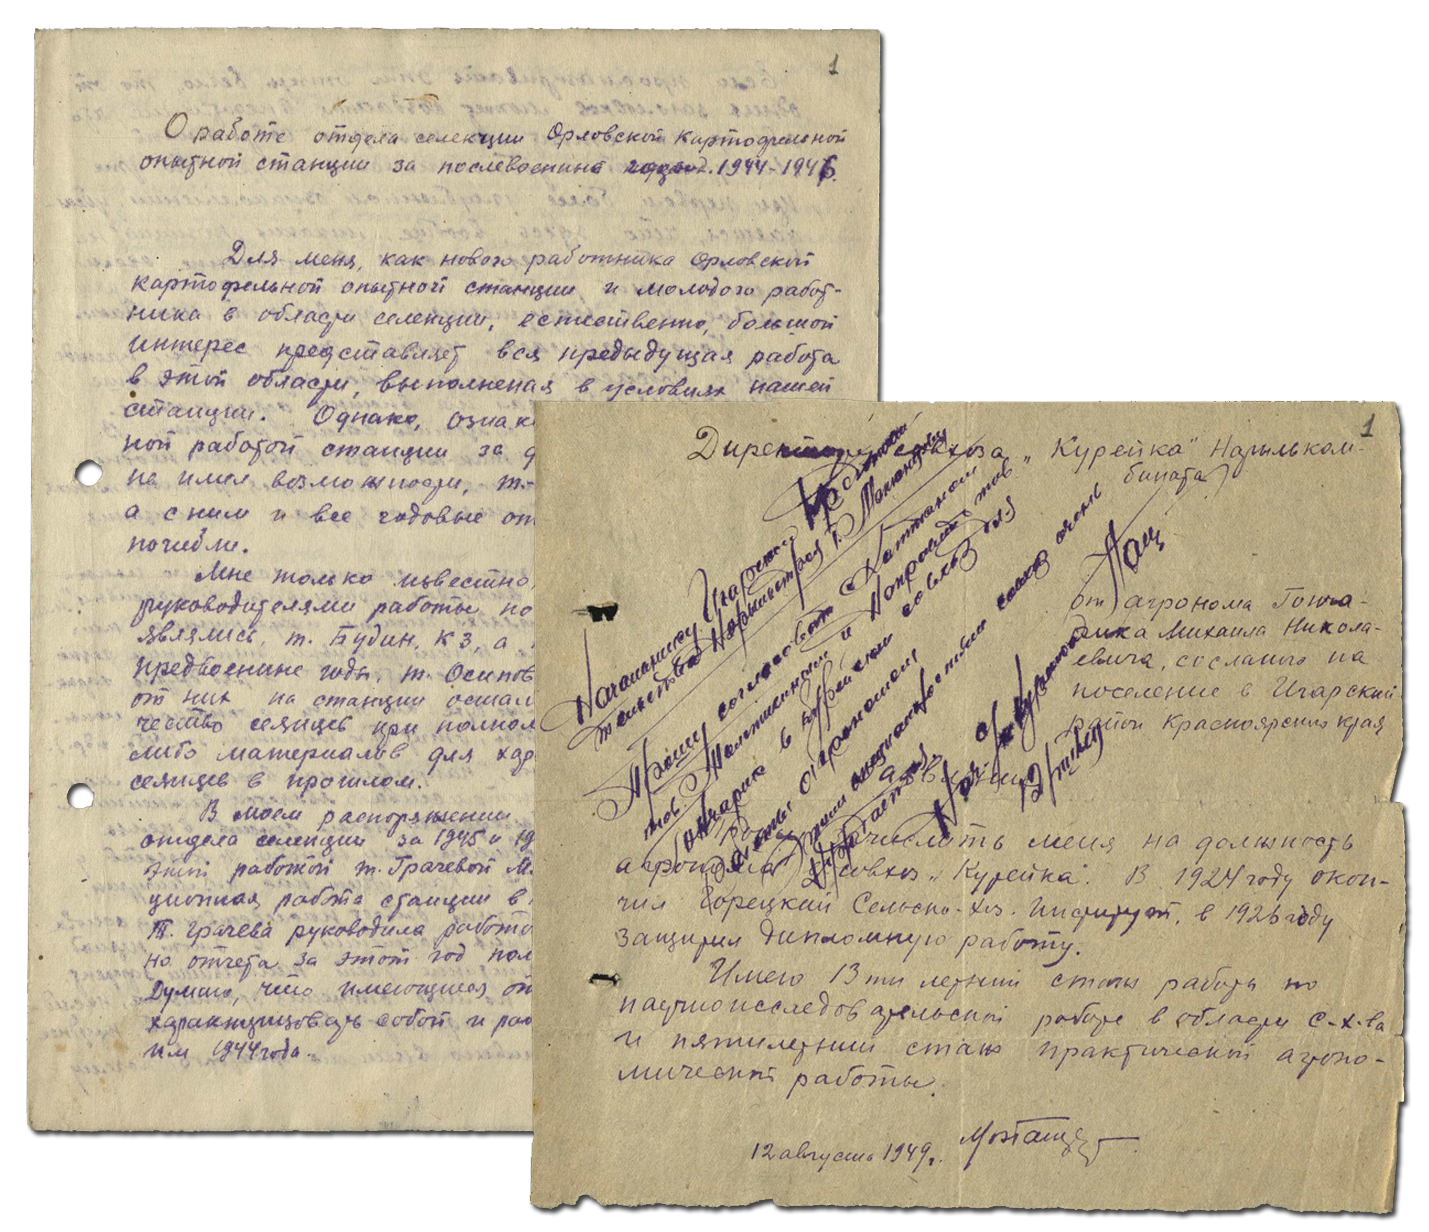 1
О работе отдела селекции Орловской картофельной
опытной станции за послевоенние 1944-1946.
Для меня, как нового работника Орловской
картофельной опытной станции и молодого работ-
ника в области селекции, естественно, большой
интерес представляет вся предыдущая работа
в этой области, выполненая в условиях нашей
станции. Однако, ознак
ной работой станции за
не имел возможности, т.-
а с ним и все годовые от
погибли.
Мне только известно,
руководителями работы по
являлись, т. Будин, К З, а
предвоенние годы, т. Осипов
от них на станции остал
чество сеянцев при полном
либо материалов для хар
сеянцев в прошлом.
В моем распоряжении
отдела селекции за 1945 и 19
этой работой т. Грачевой М
ционная работа станции в
Т. Грачева руководила работо
но отчета за этот год пол
Думаю, что имеющиеся от
собой и
им 1944 года.
1
Директору совхоза „Курейка" Нарильком-
бината
от агронома Гонча-
рика Михаила Никола-
евича, сосланого на
поселение в Игарский
район Красноярского края
Начальнику Игарского
т.
Прошу согласовать с
тов. и направить тов
Гончарик в совхоз для
работы агрономом
совхоз очень
нуждается
Нач.
зачислить меня на должность
агронома совхоз „Курейка". В 1924 году окон-
чил Горецкий Сельско-хоз. Институт, в 1926 году
защитил дипломную работу.
Имею 13ти летний стаж работы по
научноисследовательской работе в области с-х-ва
и пятилетний стаж практической агроно-
мической работы.
12 августа 1949г.